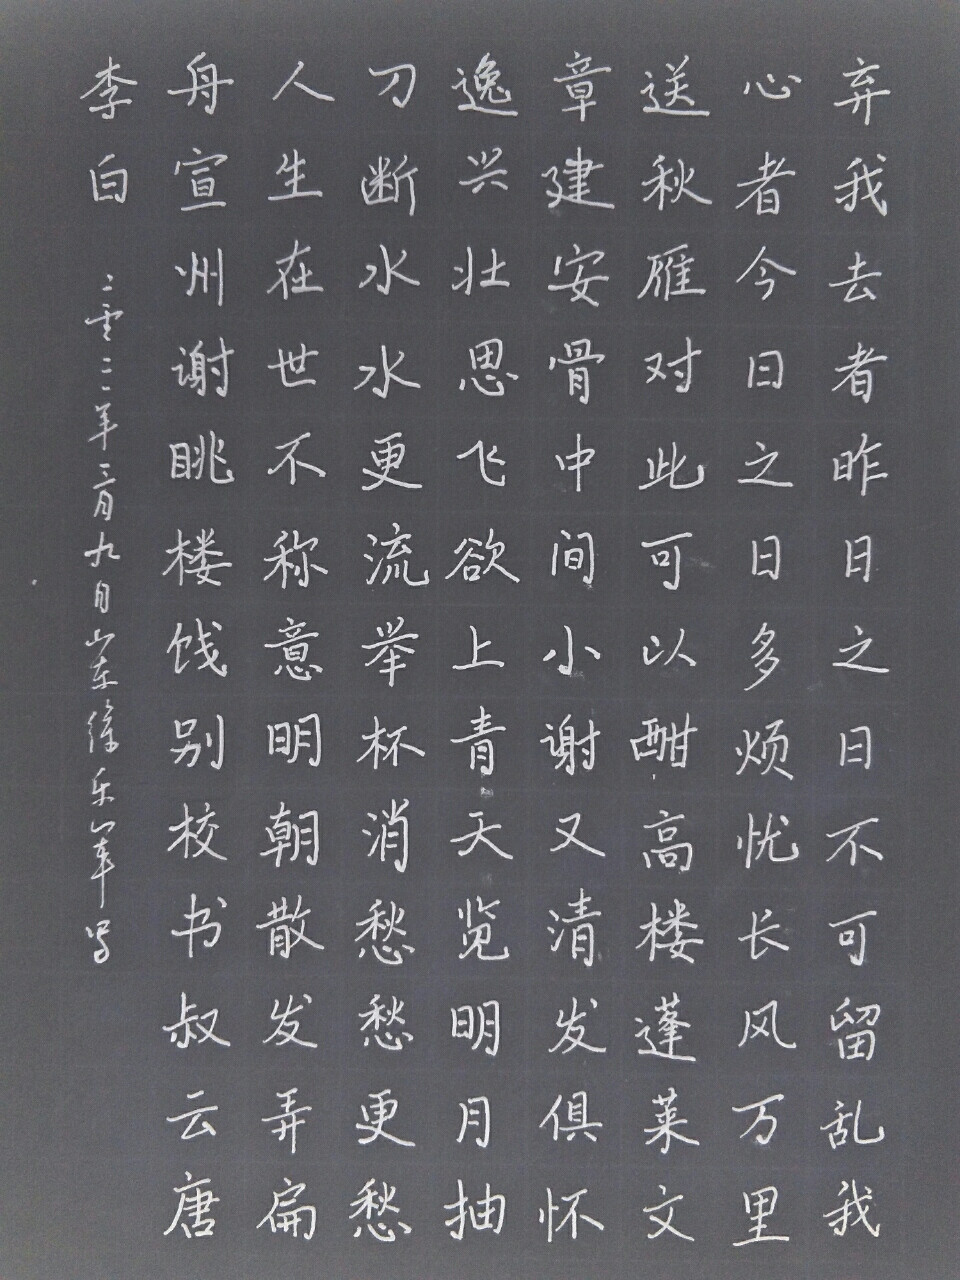 弃我去者昨日之日不可留乱我
心者今日之日多烦忧长风万里
送秋雁对此可以酣高楼蓬莱文
章建安骨中间小谢又清发俱怀
逸兴壮思飞欲上青天览明月抽
刀断水水更流举杯消愁愁更愁
人生在世不称意明朝散发弄扁
舟宣州谢眺楼饯别校书叔云唐
李白
二零二一年三月九日山东徐乐军写